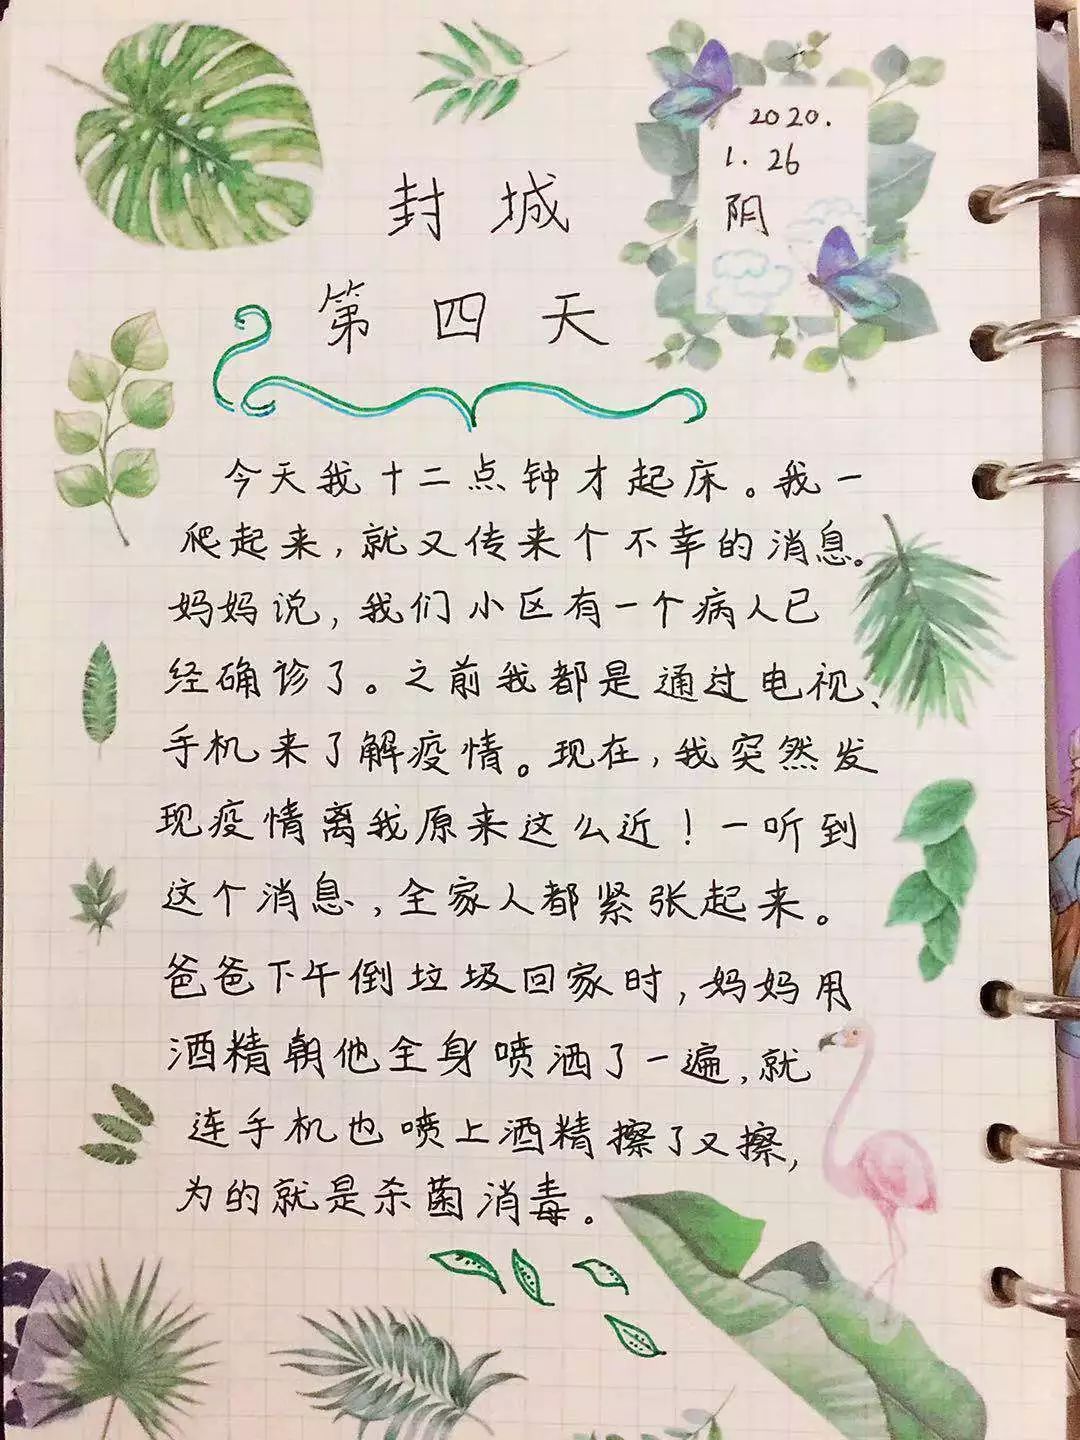 封城
2020.
1.26
阴
第四天
今天我十二点钟才起床。我一
爬起来,就又传来个不幸的消息。
妈妈说,我们小区有一个病人已
经确诊了。之前我都是通过电视、
手机来了解疫情。现在,我突然发
现疫情离我原来这么近!一听到
这个消息,全家人都紧张起来。
爸爸下午倒垃圾回家时,妈妈用
酒精朝他全身喷洒了一遍,就
连手机也喷上酒精擦了又擦,
为的就是杀菌消毒。